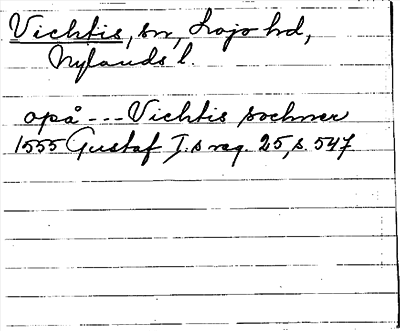 Vichtis, sn, Lojo hd,
Nylands l.
opå --- Vichtis sochner
1555 Gustaf I:s reg. 25, s. 547